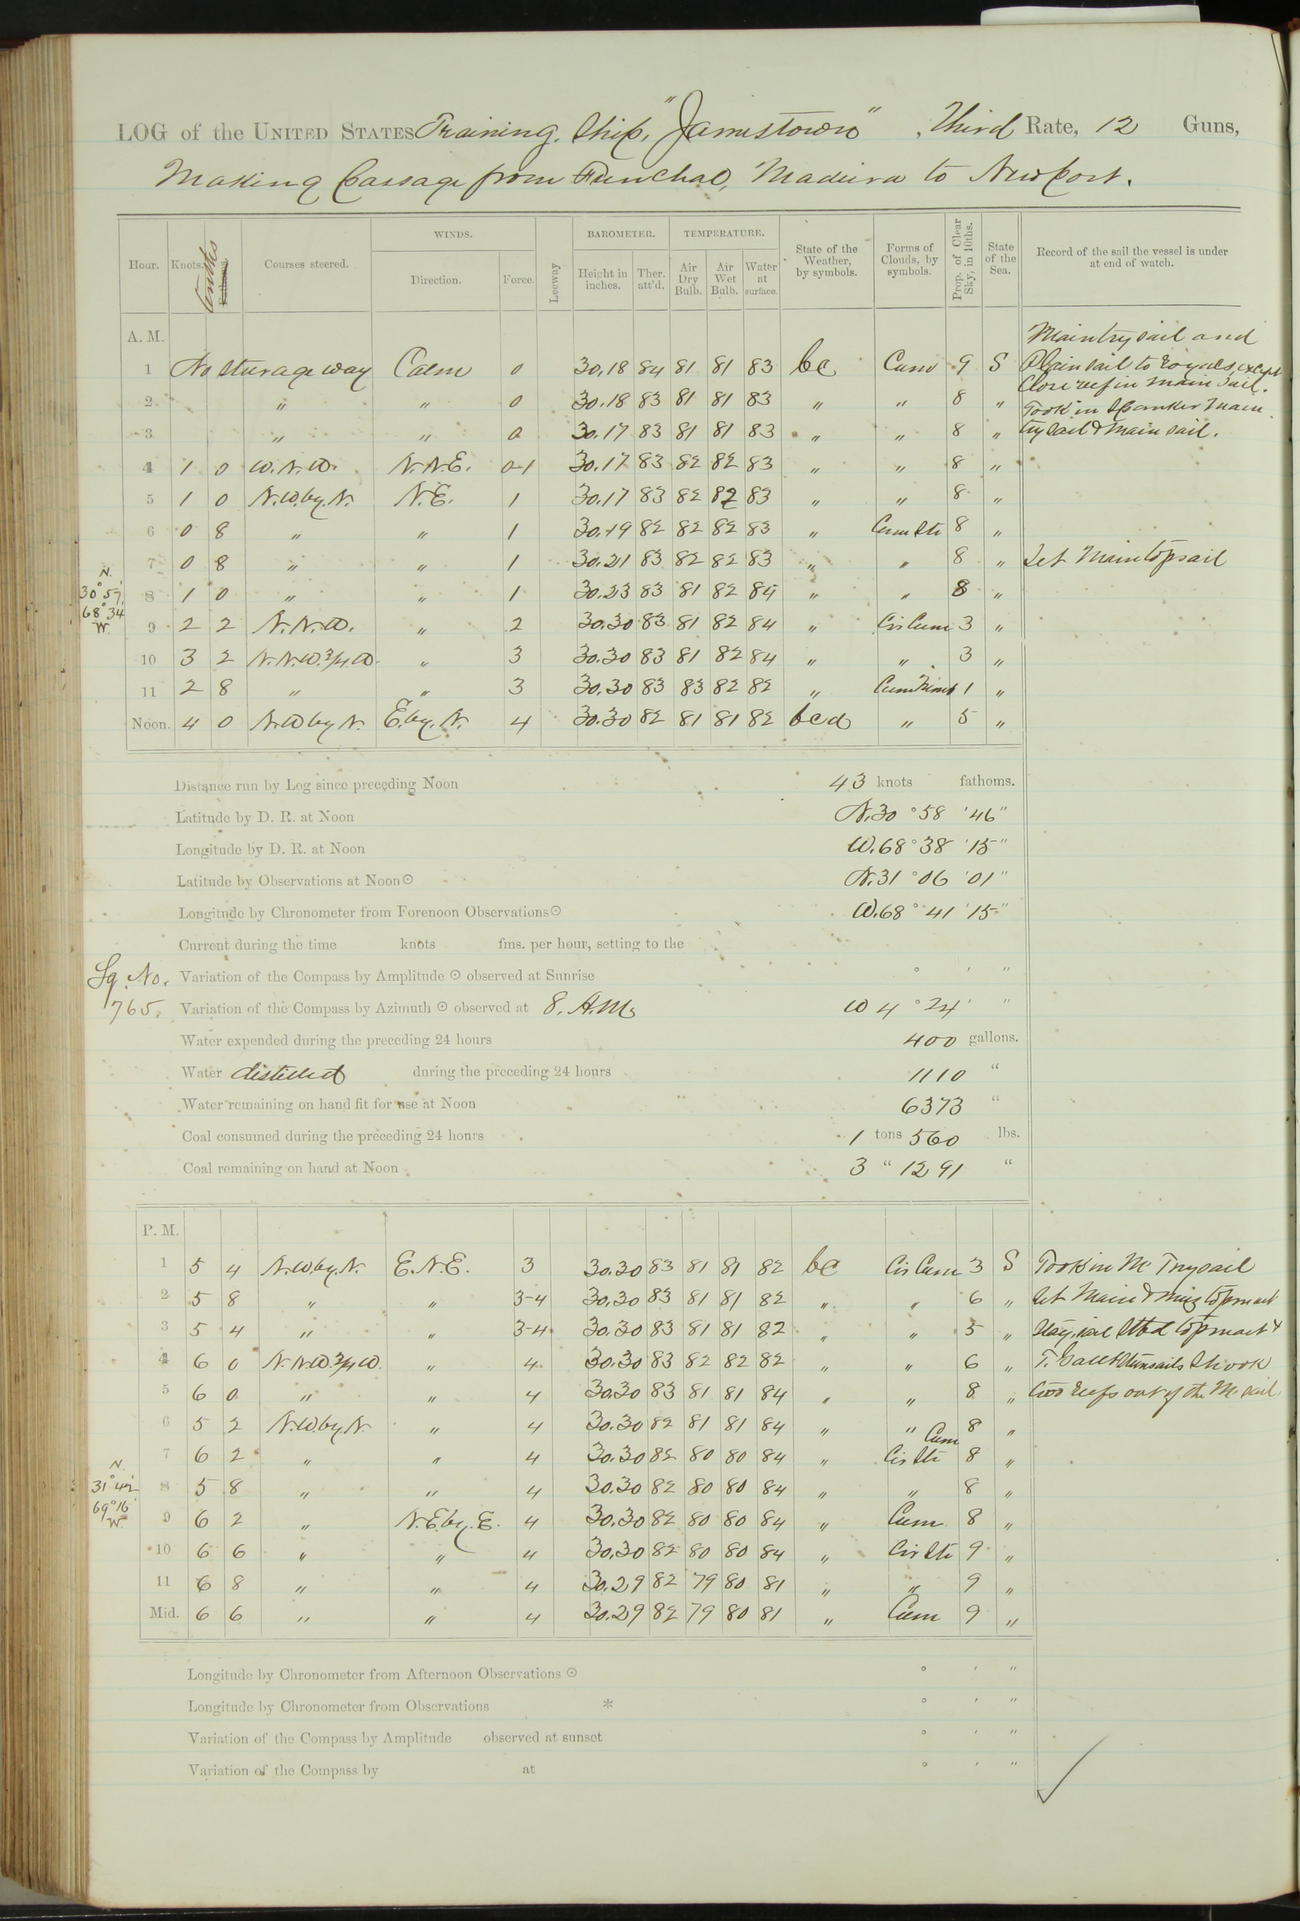 LOG of the UNITED STATES Training Ship, "Jamestown", Third Rate, 12 Guns,
Making Passage from Funchal, Madeira to Newport.
WINDS. BAROMETER. TEMPERATURE.
Hour. Knots. Tenths Courses steered. Direction. Force. Leeway Height in inches. Ther. att'd. Air Dry Bulb. Air Wet Bulb. Water at surface. State of the Weather, by symbols. Forms of Clouds, by symbols. Prop. of Clear Sky, in 10ths. State of the Sea. Record of the sail the vessel is under at end of watch.
A. M. Maintrysail and
1 No sturage way Calm 0 30.18 84 81 81 83 bc Cum 9 S Plain sail to Royals, except
Close reef in main sail.
2 " " 0 30.18 83 81 81 83 " " 8 " Took in Spanker Main
3 " " 0 30.17 83 81 81 83 " " 8 " try sail & main sail.
4 1 0 W.N.W. N.N.E. 0-1 30.17 83 82 82 83 " " 8 "
5 1 0 N.W.by.N. N.E. 1 30.17 83 82 82 83 " " 8 "
6 0 8 " " 1 30.19 82 82 82 83 " Cum Str 8 "
7 0 8 " " 1 30.21 83 82 82 83 " " 8 " Set Maintopsail
N.
30° 57'
68° 34
W.
8 1 0 " " 1 30.23 83 81 82 84 " " 8 "
9 2 2 N.N.W. " 2 30.30 83 81 82 84 " Cir Cum 3 "
10 3 2 N.N.W.3/4W. " 3 30.30 83 81 82 84 " " 3 "
11 2 8 " " 3 30.30 83 83 82 82 " Cum Nimb 1 "
Noon. 4 0 N.W by N. E. by. N. 4 30.30 82 81 81 82 bcd " 5 "
Distance run by Log since preceding Noon 43 knots fathoms.
Latitude by D. R. at Noon N. 30 ° 58 ' 46 "
Longitude by D. R. at Noon W. 68 ° 38 ' 15 "
Latitude by Observations at Noon ☉ N. 31 ° 06 ' 01 "
Longitude by Chronometer from Forenoon Observations ☉ W. 68 ° 41 ' 15 "
Current during the time knots fms. per hour, setting to the
Sq. No.
765.
Variation of the Compass by Amplitude ☉ observed at Sunrise ° ' "
Variation of the Compass by Azimuth ☉ observed at 8. A.M. W 4 ° 24 ' "
Water expended during the preceding 24 hours 400 gallons.
Water distilled during the preceding 24 hours 1110 "
Water remaining on hand fit for use at Noon 6373 "
Coal consumed during the preceding 24 hours 1 tons 560 lbs.
Coal remaining on hand at Noon 3 " 1291 "
P. M.
1 5 4 N.W.by.N. E.N.E. 3 30.30 83 81 81 82 bc Cir Cum 3 S Took in M. Trysail
2 5 8 " " 3-4 30.30 83 81 81 82 " " 6 " Set Main & miz topmast
3 5 4 " " 3-4 30.30 83 81 81 82 " " 5 " Stay, sail Stbd topmast &
4 6 0 N.N.W.3/4W. " 4 30.30 83 82 82 82 " " 6 " T. Gallt Stunsails Shook
5 6 0 " " 4 30.30 83 81 81 84 " " 8 " two reefs out of the M. sail.
6 5 2 N.W.by.N. " 4 30.30 82 81 81 84 " " 8 "
7 6 2 " " 4 30.30 82 80 80 84 " Cum Cir Str 8 "
N.
31° 42'
69° 16'
W.
8 5 8 " " 4 30.30 82 80 80 84 " " 8 "
9 6 2 " N.E.by.E. 4 30.30 82 80 80 84 " Cum 8 "
10 6 6 " " 4 30.30 82 80 80 84 " Cir Str 9 "
11 6 8 " " 4 30.29 82 79 80 81 " " 9 "
Mid. 6 6 " " 4 30.29 82 79 80 81 " Cum 9 "
Longitude by Chronometer from Afternoon Observations ☉ ° ' "
Longitude by Chronometer from Observations * ° ' "
Variation of the Compass by Amplitude observed at sunset ° ' "
Variation of the Compass by at ° ' "